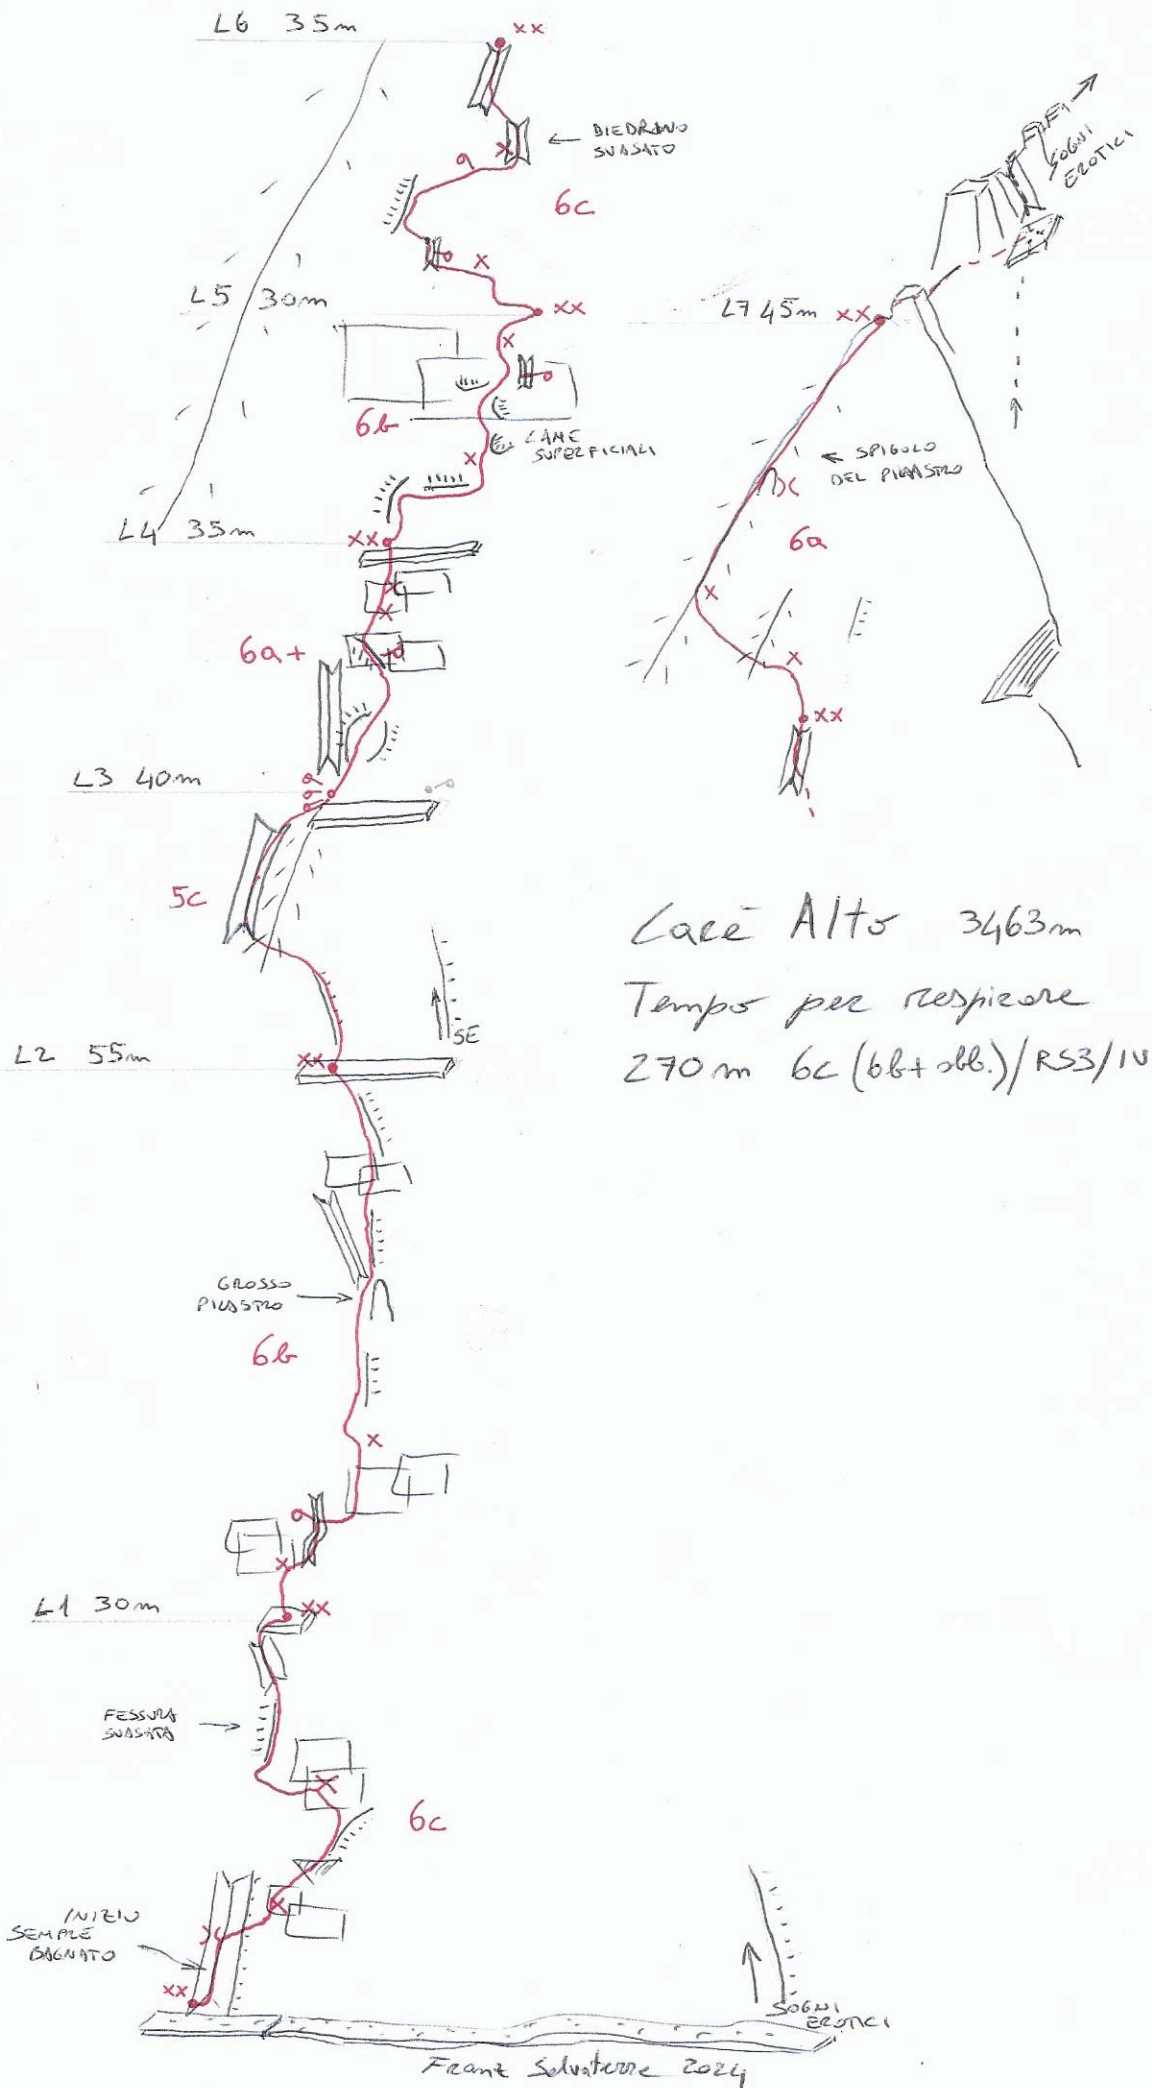 L6 35m
xx
DIEDRO
SVASATO
6c
FF1
SOGNI
EROTICI
L5 30m
xx
L7 45m
xx
6b
LAME
SUPERFICIALI
SPIGOLO
DEL PILASTRO
L4 35m
xx
6a
6a+
xx
L3 40m
5c
Carè Alto 3463m
Tempo per respirare
270m 6c (6b+ obb.)/RS3/IV
SE
L2 55m
xx
GROSSO
PILASTRO
6b
L1 30m
xx
FESSURA
SVASATA
6c
INIZIO
SEMPRE
BAGNATO
xx
SOGNI
EROTICI
Franz Salvaterra 2024